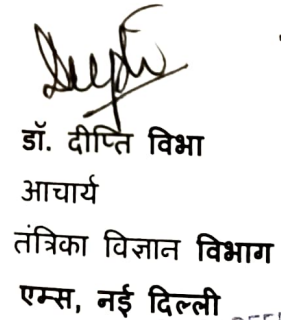 डॉ. दीप्ति विभा
आचार्य
तंत्रिका विज्ञान विभाग
एम्स, नई दिल्ली